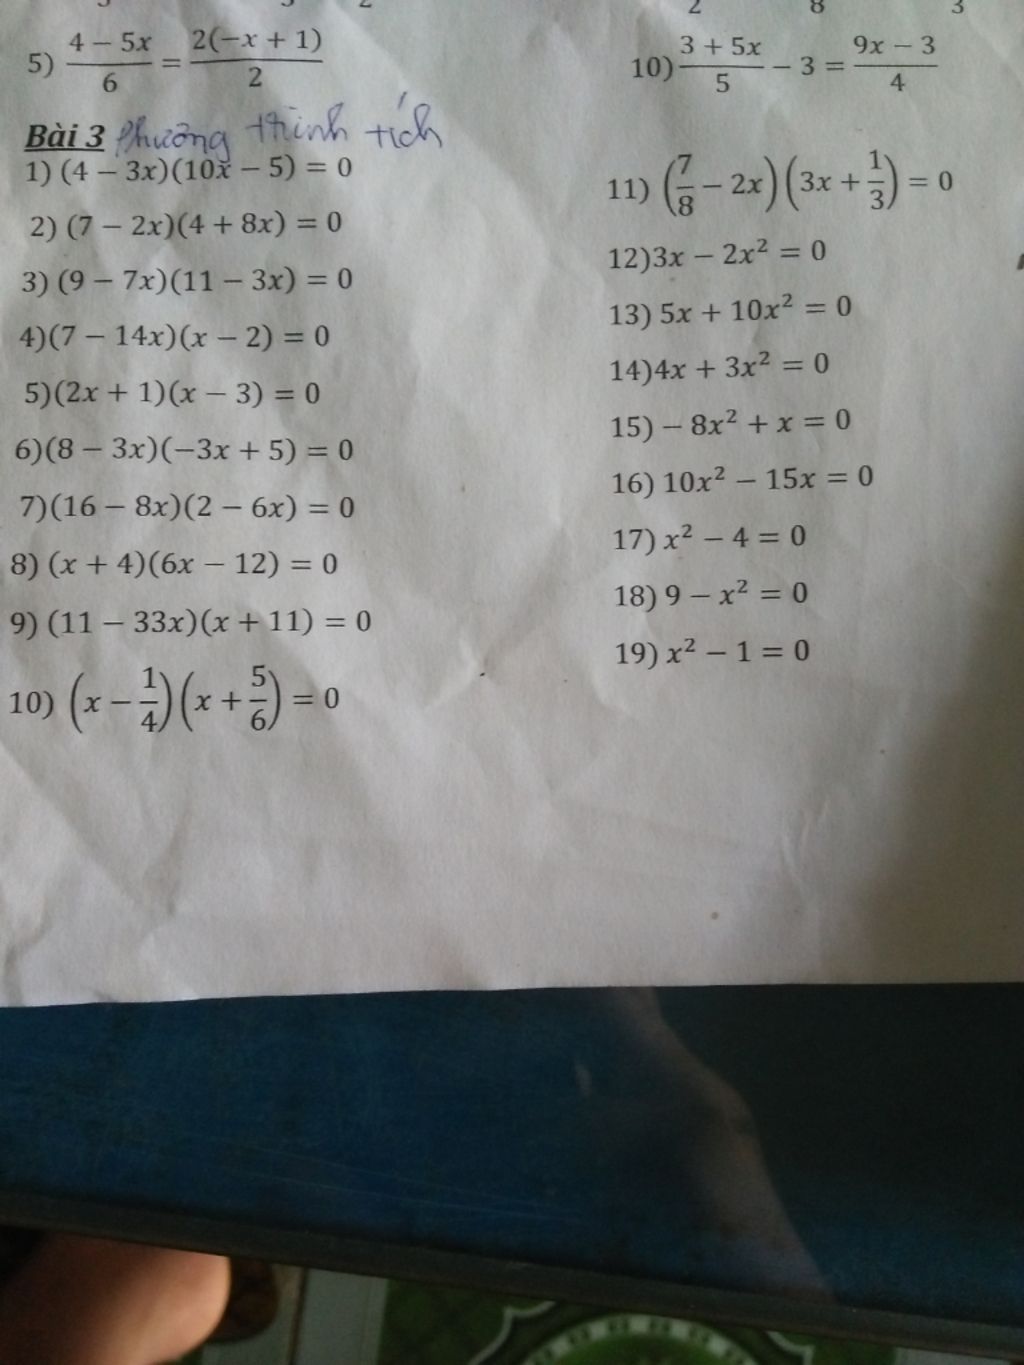 5) \frac{4 − 5x}{6} = \frac{2(−x + 1)}{2}
Bài 3 Phương trình tích
1) (4 − 3x)(10x − 5) = 0
2) (7 − 2x)(4 + 8x) = 0
3) (9 − 7x)(11 − 3x) = 0
4)(7 − 14x)(x − 2) = 0
5)(2x + 1)(x − 3) = 0
6)(8 − 3x)(−3x + 5) = 0
7)(16 − 8x)(2 − 6x) = 0
8) (x + 4)(6x − 12) = 0
9) (11 − 33x)(x + 11) = 0
10) (x − \frac{1}{4})(x + \frac{5}{6}) = 0
2 8 3
10) \frac{3 + 5x}{5} − 3 = \frac{9x − 3}{4}
11) (\frac{7}{8} − 2x)(3x + \frac{1}{3}) = 0
12)3x − 2x² = 0
13) 5x + 10x² = 0
14)4x + 3x² = 0
15) − 8x² + x = 0
16) 10x² − 15x = 0
17) x² − 4 = 0
18) 9 − x² = 0
19) x² − 1 = 0